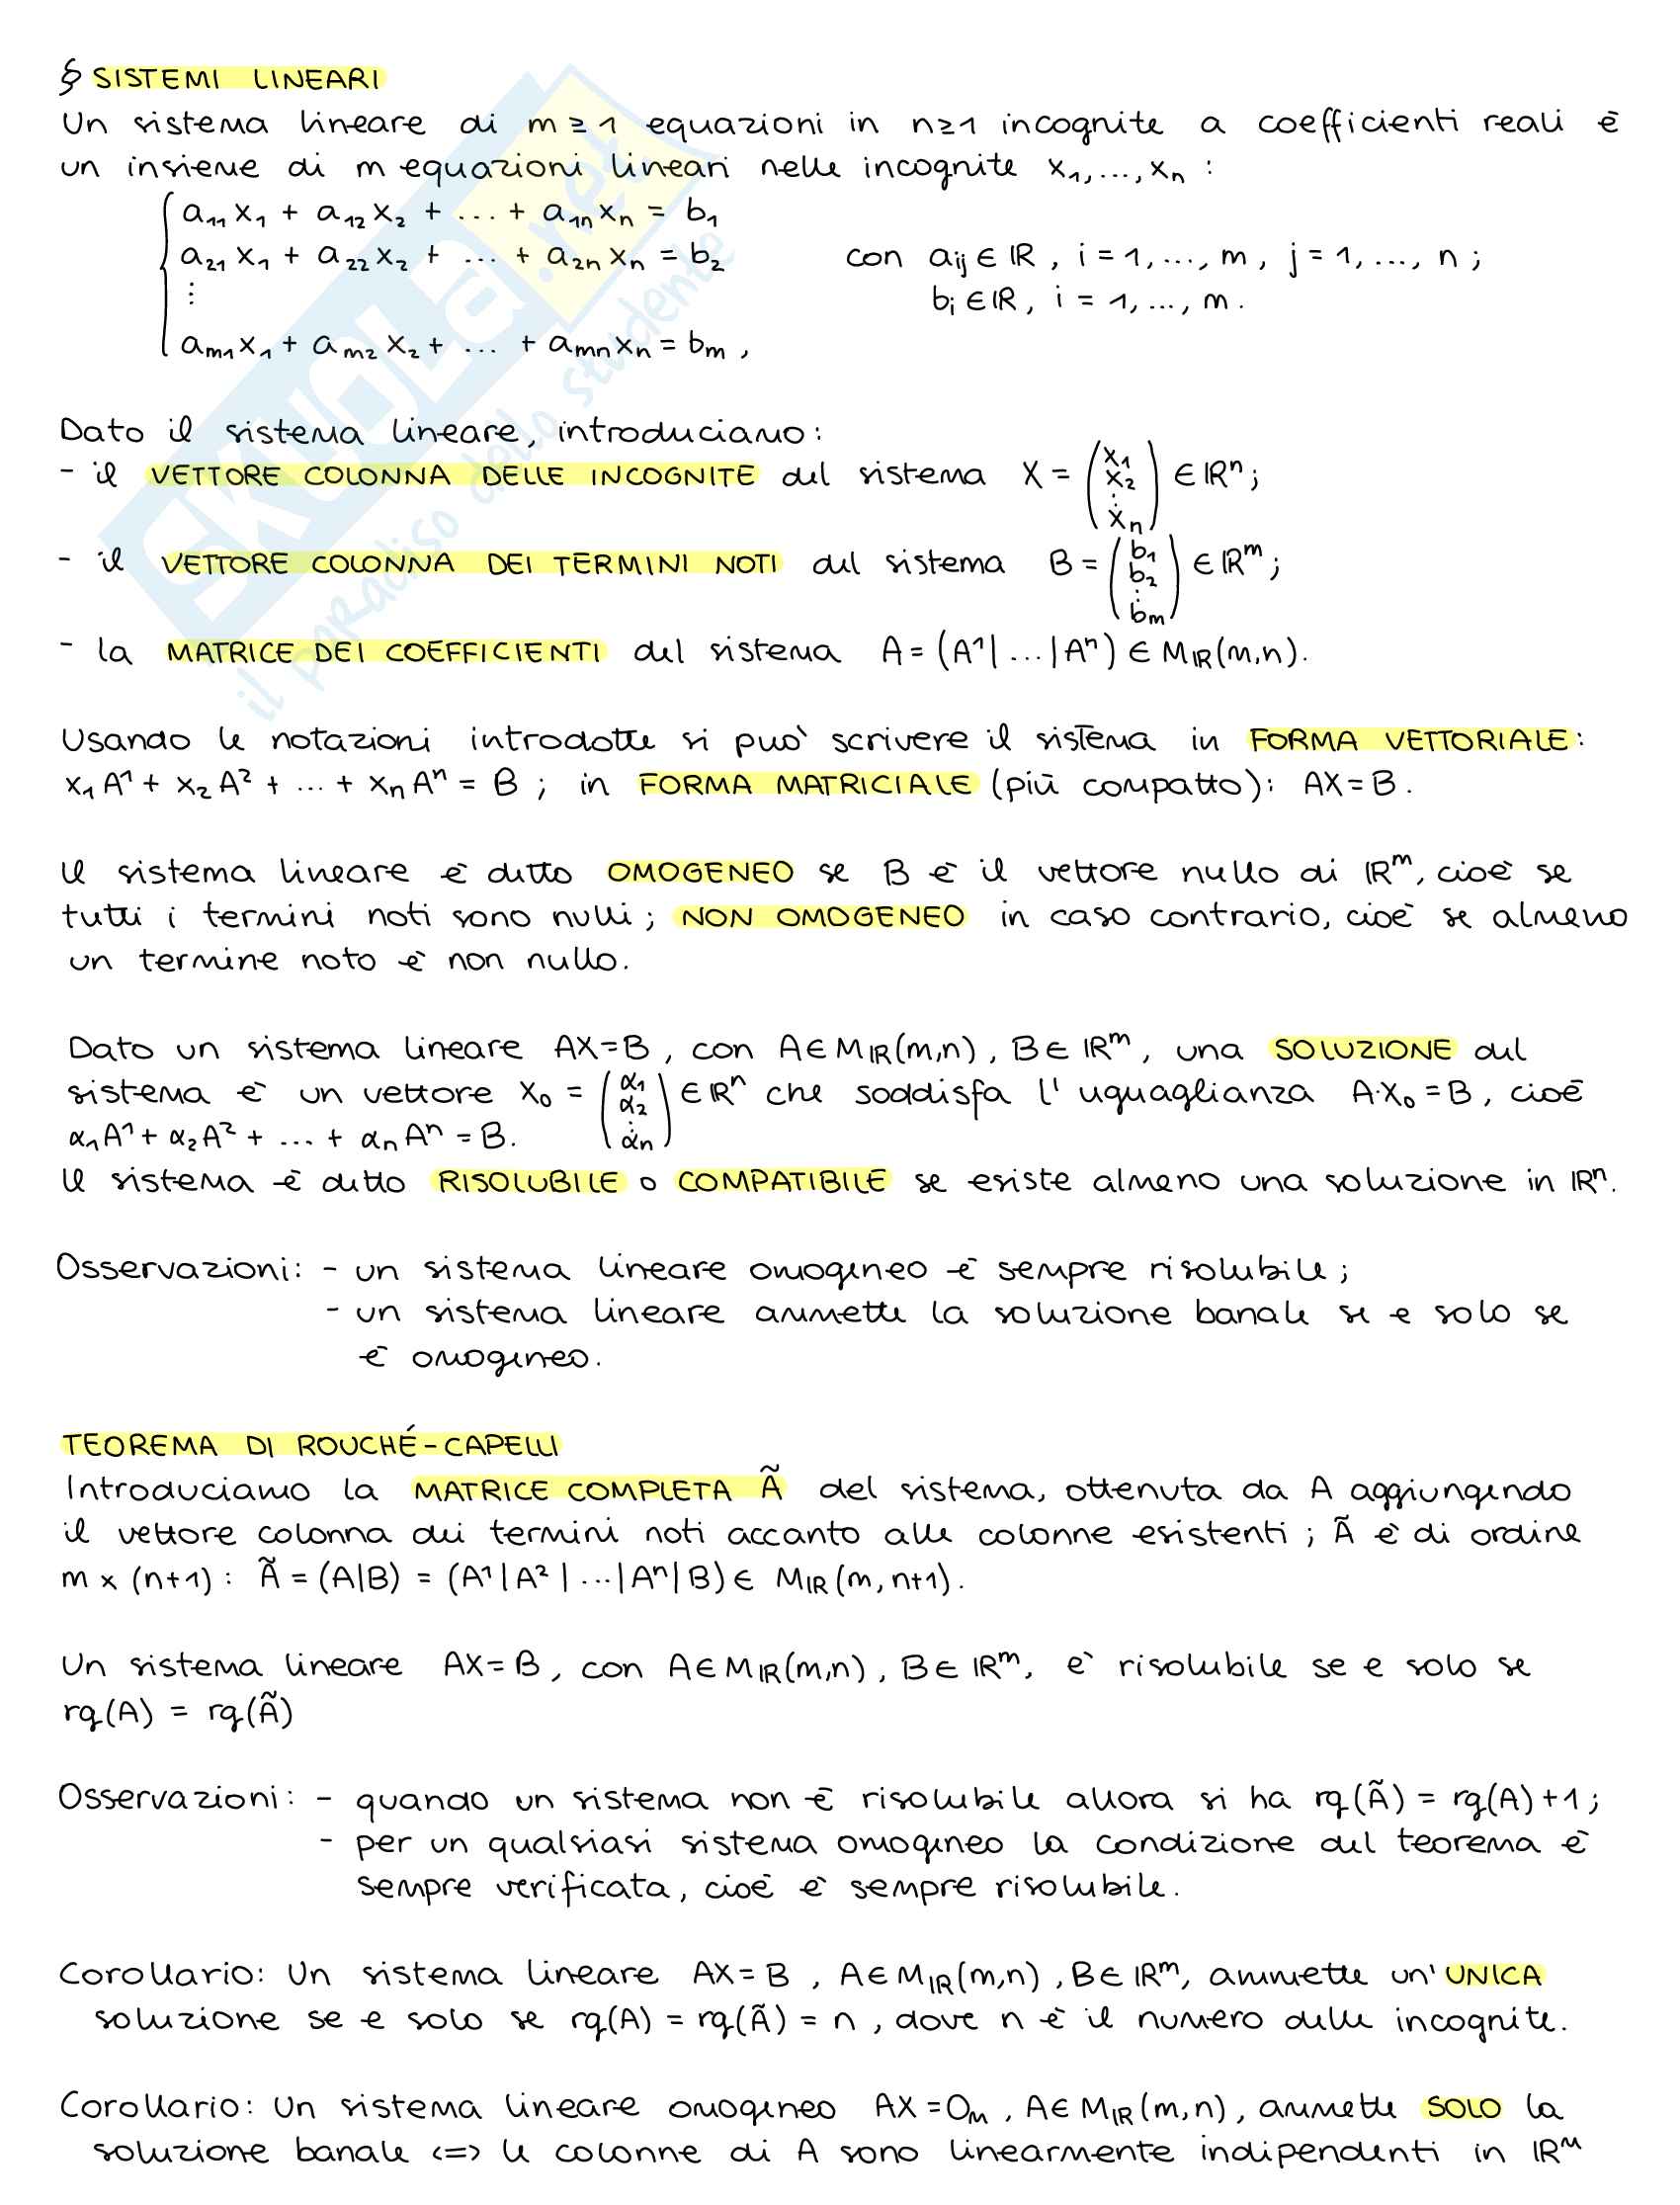 § SISTEMI LINEARI
Un sistema lineare di m ≥ 1 equazioni in n≥1 incognite a coefficienti reali è
un insieme di m equazioni lineari nelle incognite x₁,...,xₙ :
a₁₁x₁ + a₁₂x₂ + ... + a₁ₙxₙ = b₁
a₂₁x₁ + a₂₂x₂ + ... + a₂ₙxₙ = b₂ con aᵢⱼ ∈ ℝ, i = 1, ..., m, j = 1, ..., n ;
⋮ bᵢ ∈ ℝ, i = 1, ..., m.
aₘ₁x₁ + aₘ₂x₂ + ... + aₘₙxₙ = bₘ ,
Dato il sistema lineare, introduciamo:
- il VETTORE COLONNA DELLE INCOGNITE del sistema X = (x₁ x₂ ⋮ xₙ) ∈ ℝⁿ;
- il VETTORE COLONNA DEI TERMINI NOTI del sistema B = (b₁ b₂ ⋮ bₘ) ∈ ℝᵐ;
- la MATRICE DEI COEFFICIENTI del sistema A = (A¹| ... |Aⁿ) ∈ M_ℝ(m,n).
Usando le notazioni introdotte si può scrivere il sistema in FORMA VETTORIALE:
x₁A¹ + x₂A² + ... + xₙAⁿ = B ; in FORMA MATRICIALE (più compatto): AX = B.
Il sistema lineare è detto OMOGENEO se B è il vettore nullo di ℝᵐ, cioè se
tutti i termini noti sono nulli ; NON OMOGENEO in caso contrario, cioè se almeno
un termine noto è non nullo.
Dato un sistema lineare AX=B, con A∈M_ℝ(m,n), B∈ℝᵐ, una SOLUZIONE del
sistema è un vettore X₀ = (α₁ α₂ ⋮ αₙ) ∈ℝⁿ che soddisfa l'uguaglianza A·X₀ = B, cioè
α₁A¹ + α₂A² + ... + αₙAⁿ = B.
Il sistema è detto RISOLUBILE o COMPATIBILE se esiste almeno una soluzione in ℝⁿ.
Osservazioni: - un sistema lineare omogeneo è sempre risolubile ;
- un sistema lineare ammette la soluzione banale se e solo se
è omogeneo.
TEOREMA DI ROUCHÉ-CAPELLI
Introduciamo la MATRICE COMPLETA Ã del sistema, ottenuta da A aggiungendo
il vettore colonna dei termini noti accanto alle colonne esistenti ; Ã è di ordine
m × (n+1) : Ã = (A|B) = (A¹|A²| ... |Aⁿ|B) ∈ M_ℝ(m, n+1).
Un sistema lineare AX=B, con A∈M_ℝ(m,n), B∈ℝᵐ, è risolubile se e solo se
rg(A) = rg(Ã)
Osservazioni: - quando un sistema non è risolubile allora si ha rg(Ã) = rg(A)+1 ;
- per un qualsiasi sistema omogeneo la condizione del teorema è
sempre verificata, cioè è sempre risolubile.
Corollario: Un sistema lineare AX = B, A∈M_ℝ(m,n), B∈ℝᵐ, ammette un'UNICA
soluzione se e solo se rg(A) = rg(Ã) = n, dove n è il numero delle incognite.
Corollario: Un sistema lineare omogeneo AX = 0ₘ, A∈M_ℝ(m,n), ammette SOLO la
soluzione banale <=> le colonne di A sono linearmente indipendenti in ℝᵐ
SKUOLA.net
il paradiso dello studente